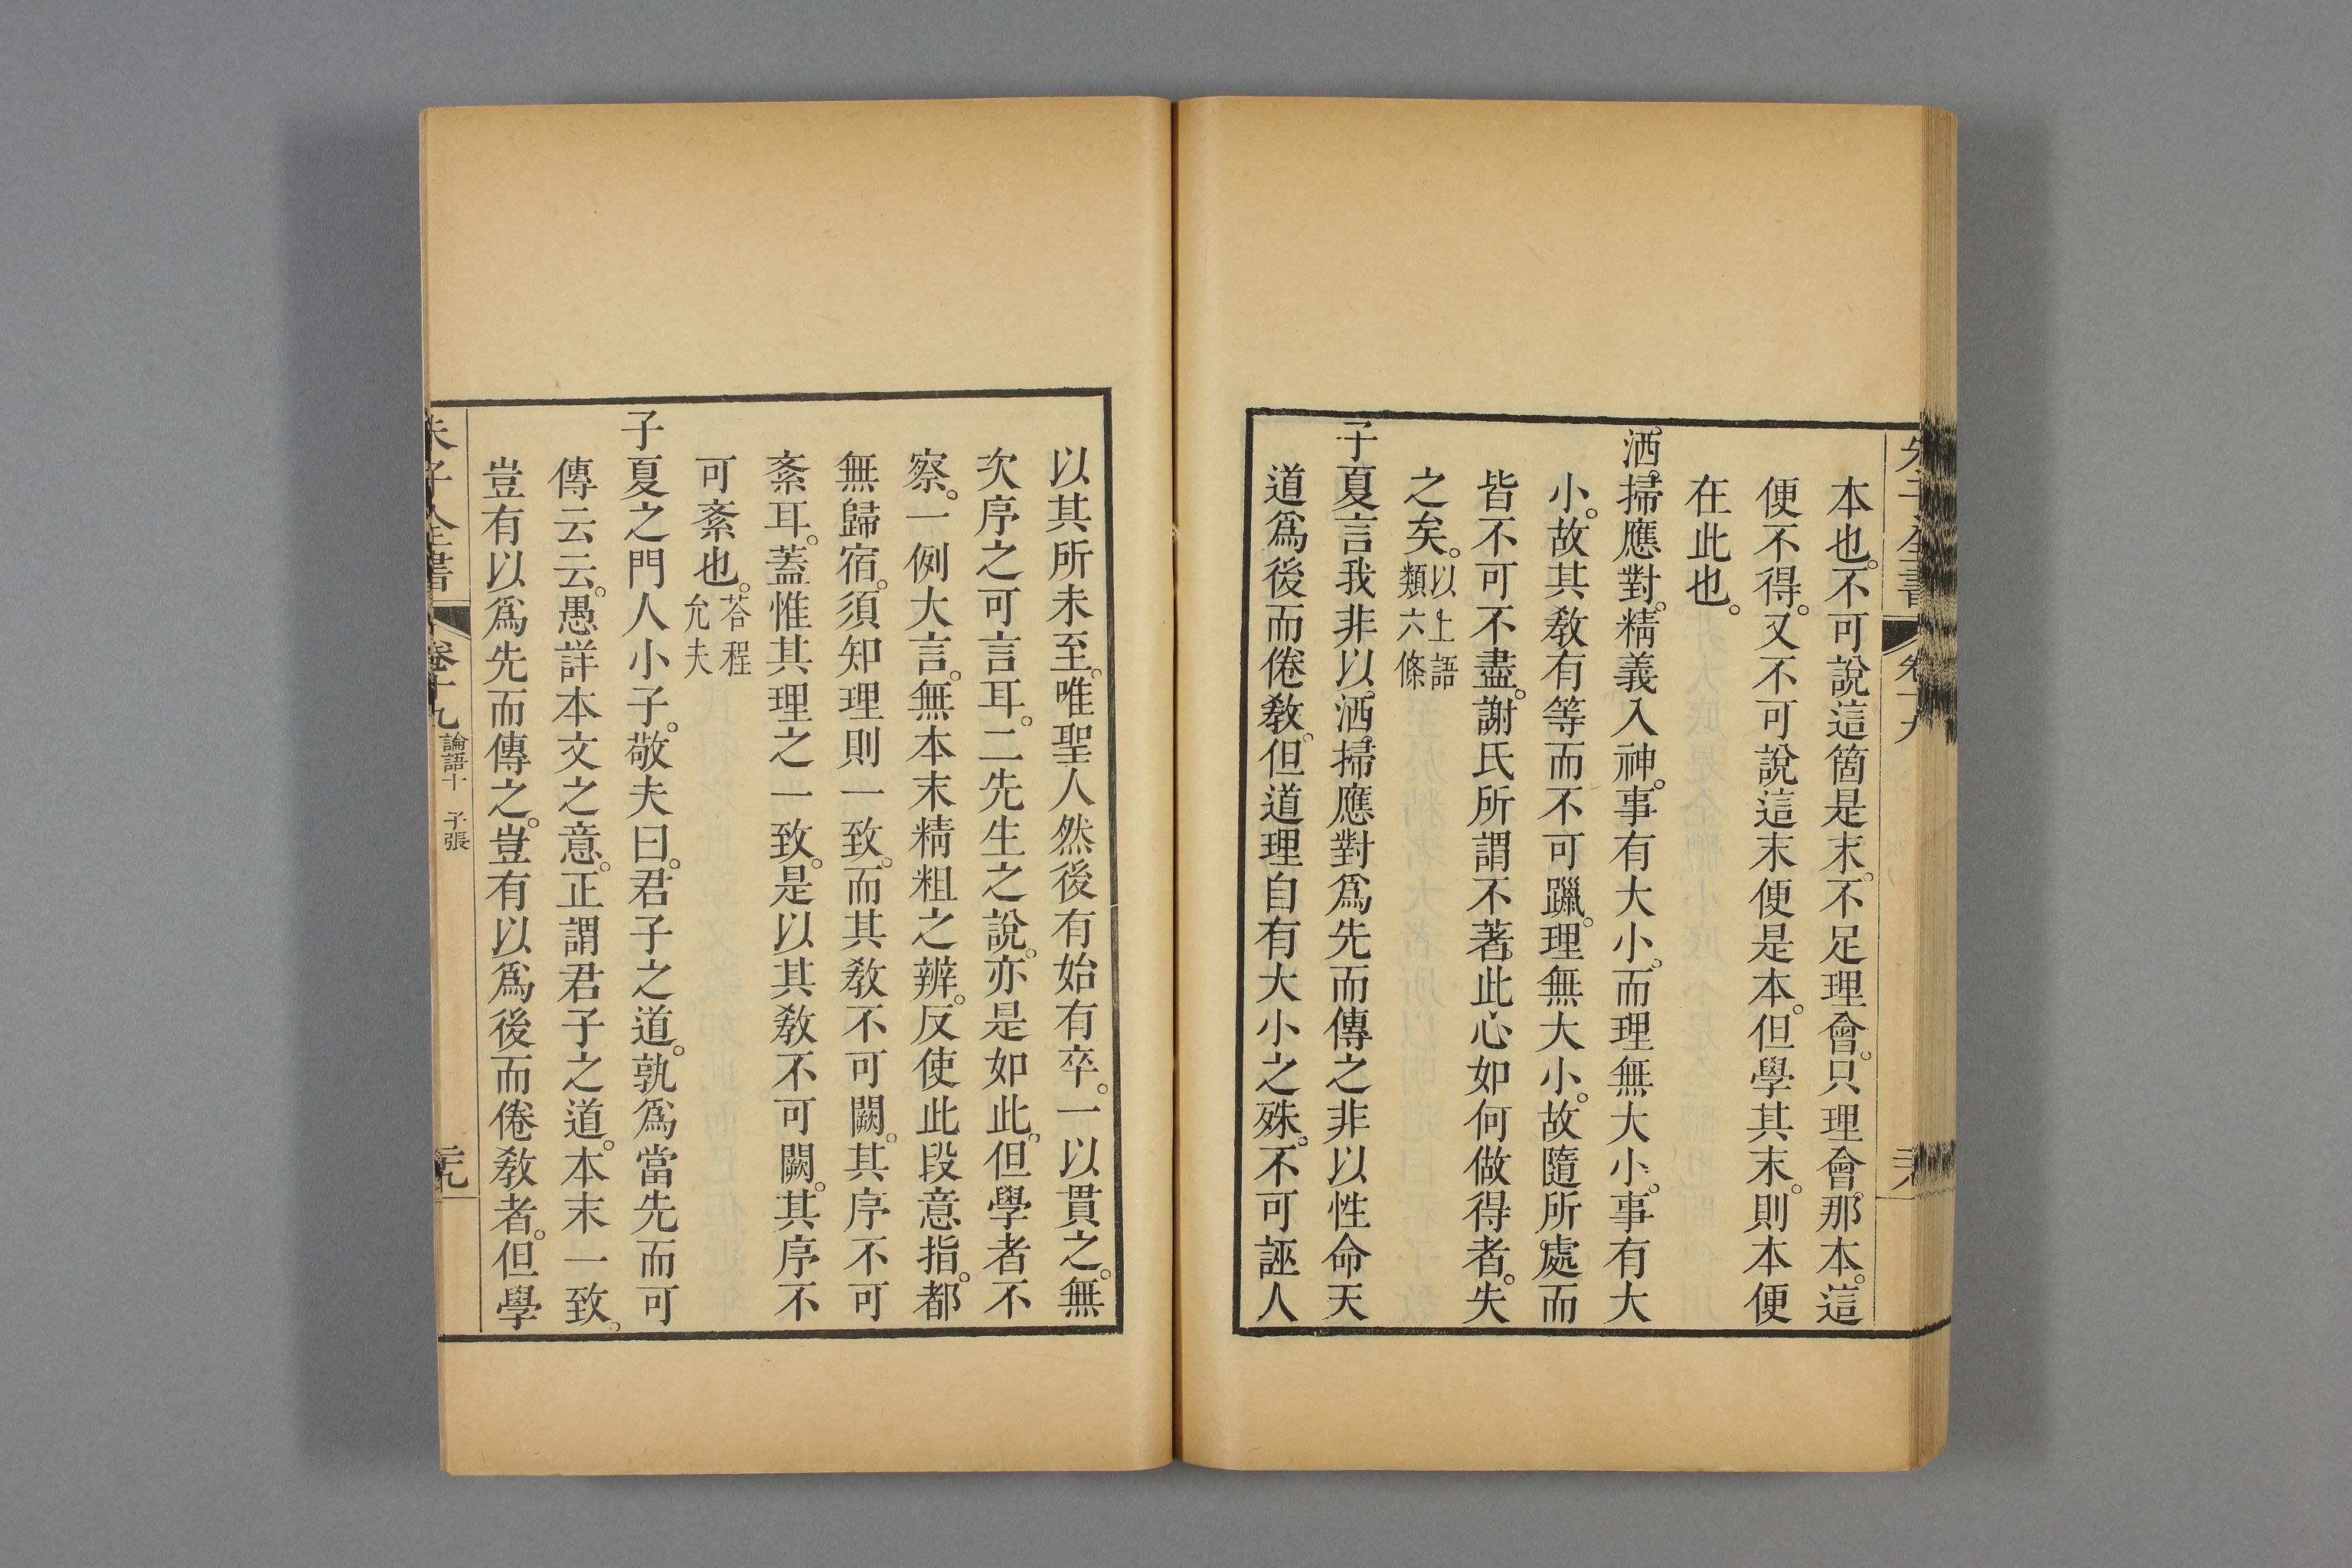 本也。不可說這箇是末。不足理會。只理會那本。這
便不得。又不可說這末便是本。但學其末。則本便
在此也。
洒掃應對。精義入神。事有大小。而理無大小。事有大
小。故其敎有等而不可躐。理無大小。故隨所處而
皆不可不盡。謝氏所謂不著此心如何做得者。失
之矣。以上語類六條
子夏言我非以洒掃應對爲先而傳之非以性命天
道爲後而倦敎。但道理自有大小之殊。不可誣人
以其所未至。唯聖人然後有始有卒。一以貫之。無
次序之可言耳。二先生之說。亦是如此。但學者不
察。一例大言。無本末精粗之辨。反使此段意指。都
無歸宿。須知理則一致。而其敎不可闕。其序不可
紊耳。蓋惟其理之一致。是以其敎不可闕。其序不
可紊也。荅程允夫
子夏之門人小子。敬夫曰。君子之道。孰爲當先而可
傳云云。愚詳本文之意。正謂君子之道。本末一致。
豈有以爲先而傳之。豈有以爲後而倦敎者。但學
朱子全書
卷十九
論語十 子張
三九